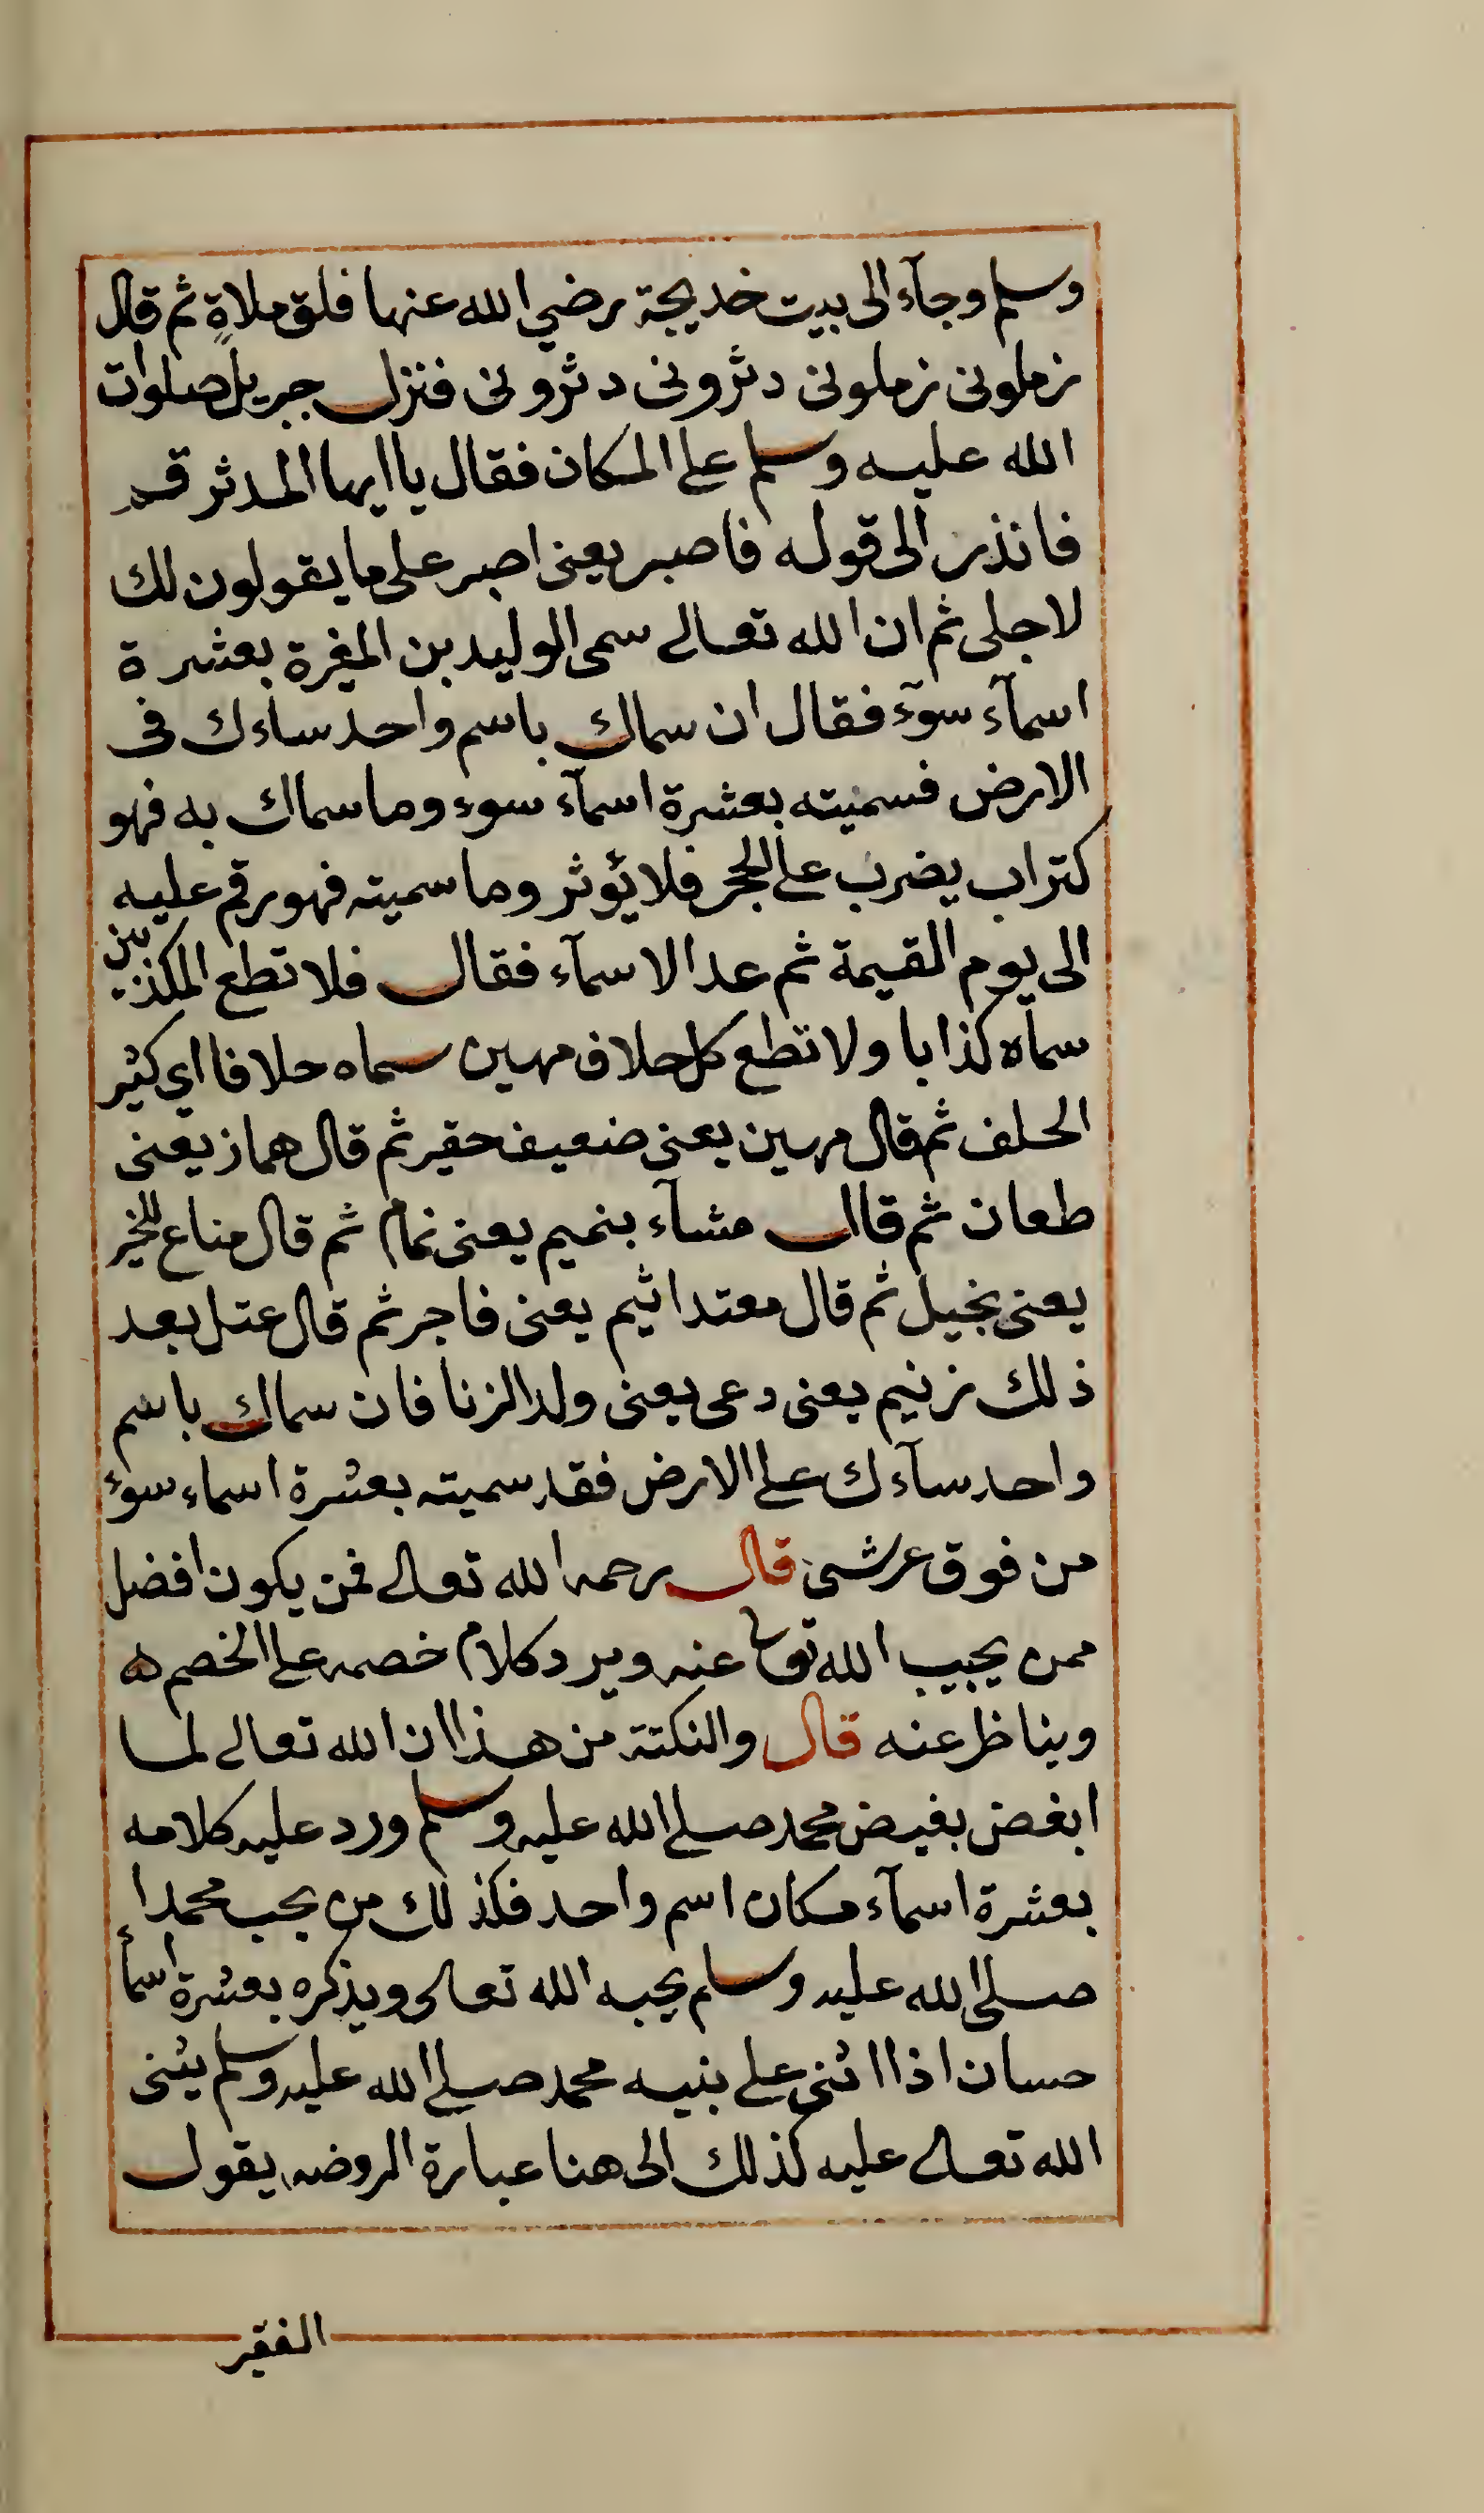 وسلم وجآء الى بيت خديجة رضي الله عنها فلق ملاةٍ ثم قال
زملونى زملونى دثرونى دثرونى فنزل جبريل صلوات
الله عليه وسلم على المكان فقال يا ايها المدثر قم
فانذر الى قوله فاصبر يعنى اصبر على ما يقولون لك
لاجلى ثم ان الله تعالى سمى الوليد بن المغرة بعشرة
اسمآء سوٓء فقال ان سماك باسم واحد ساءك فى
الارض فسميته بعشرة اسمآء سوء وما سماك به فهو
كتراب يضرب على الحجر فلا يؤثر وما سميته فهو رقم عليه
الى يوم القيمة ثم عد الاسمآء فقال فلا تطع المكذبين
سماه كذابا ولا تطع كل حلاف مهين سماه حلافا اي كثير
الحلف ثم قال مهين يعنى ضعيف حقير ثم قال هماز يعنى
طعان ثم قال مشآء بنميم يعنى نمام ثم قال مناع للخير
يعنى بخيل ثم قال معتد اثيم يعنى فاجر ثم قال عتل بعد
ذلك زنيم يعنى دعى يعنى ولد الزنا فان سماك باسم
واحد سآءك على الارض فقد سميته بعشرة اسماء سوء
من فوق عرشى قال رحمه الله تعالى فمن يكون افضل
ممن يجيب الله تعالى عنه ويرد كلام خصمه على الخصم ه
ويناظر عنه قال والنكتة من هذا ان الله تعالى لما
ابغض بغيض محمد صلى الله عليه وسلم ورد عليه كلامه
بعشرة اسمآء مكان اسم واحد فكذلك من يحب محمدا
صلى الله عليه وسلم يحبه الله تعالى ويذكره بعشرة اسمأ
حسان اذا اثنى على نبيه محمد صلى الله عليه وسلم يثنى
الله تعالى عليه كذلك الى هنا عبارة الروضه يقول
الفقير